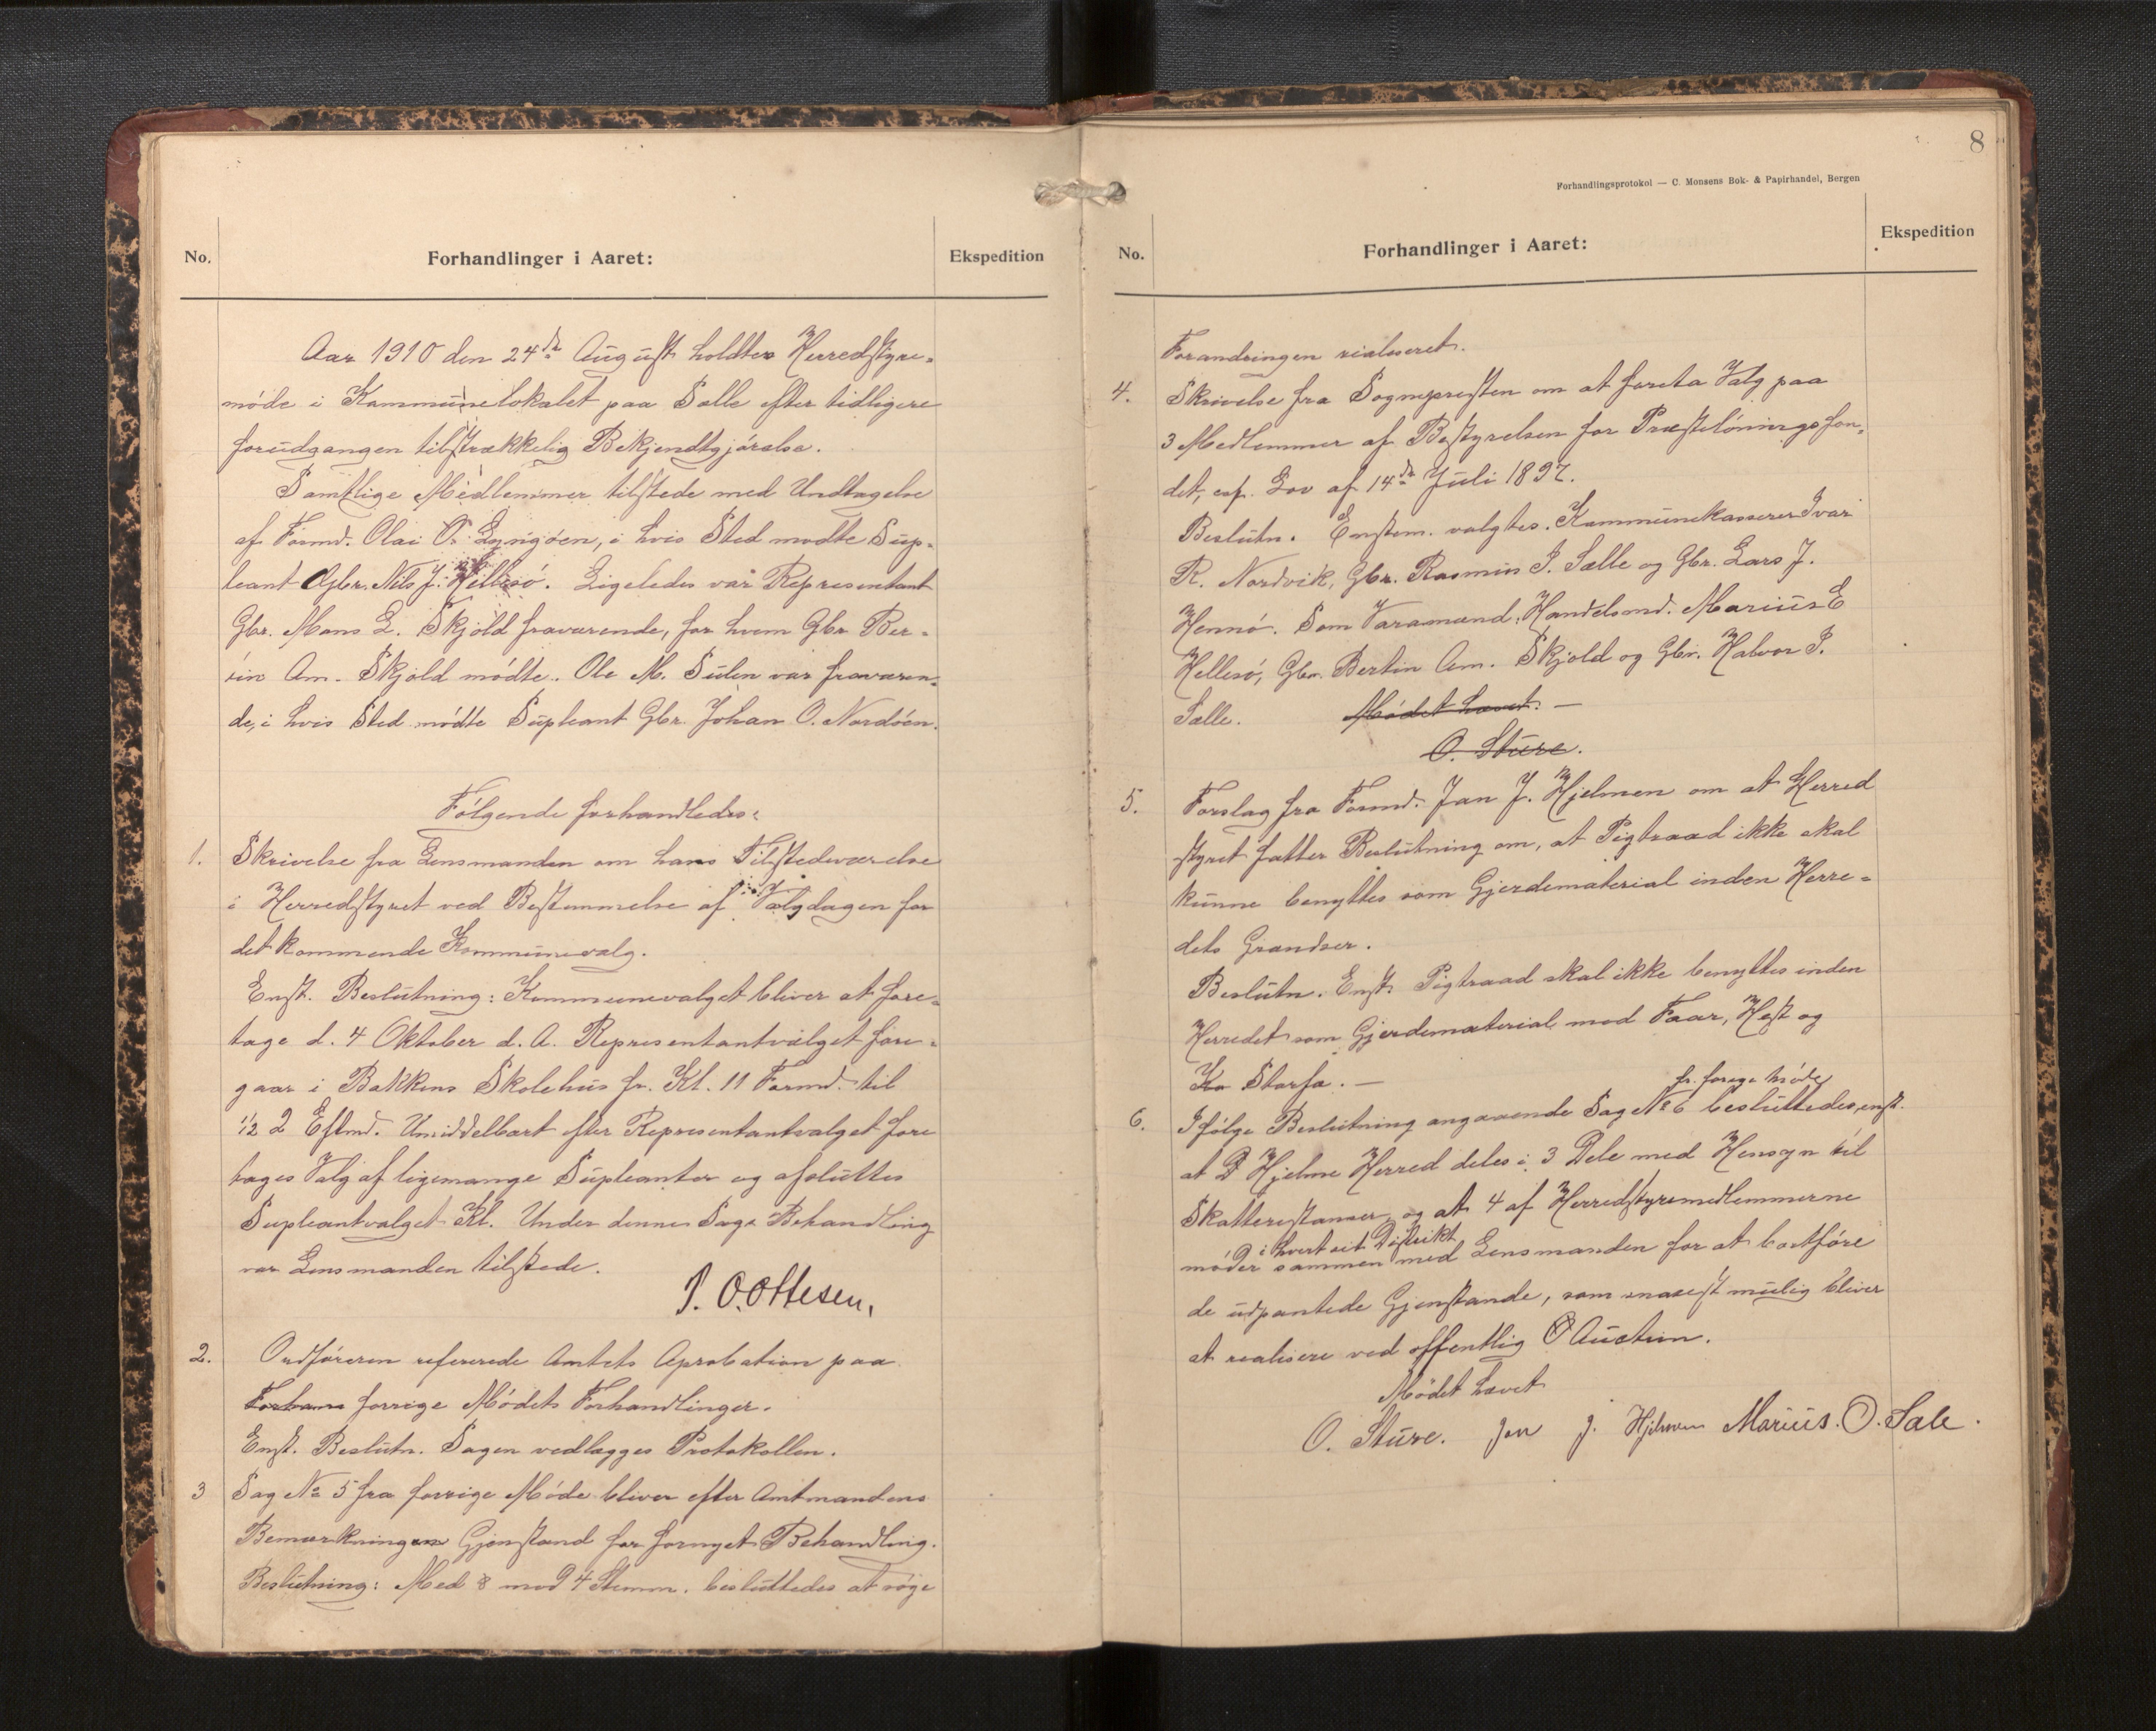 No.
Forhandlinger i Aaret:
Ekspedition
Aar 1910 den 24de August holdtes Herredstyre-
møde i Kommunelokalet paa Sælle efter tidligere
forudgangen tilstrækkelig Bekjendtgjørelse.
Samtlige Medlemmer tilstede med Undtagelse
af Formd. Olai O. Lyngøen, i hvis Sted mødte Sup-
leant Gbr. Nils J. Hellesø. Ligeledes var Representant
Gbr. Mons L. Skjold fraværende, for hvem Gbr Ber-
tin Am. Skjold mødte. Ole M. Sulen var fraværen-
de, i hvis Sted mødte Supleant Gbr. Johan O. Nordøen.
Følgende forhandledes:
1. Skrivelse fra Lensmanden om hans Tilstedeværelse
i Herredstyret ved Bestemmelse af Valgdagen for
det kommende Kommunevalg.
Enst. Beslutning: Kommunevalget bliver at fore-
tage d. 4 Oktober d. A. Representantvalget fore-
gaar i Bakkens Skolehus fr. Kl. 11 Formd. til
1/2 2 Eftmd. Umiddelbart efter Representantvalget fore
tages Valg af ligemange Supleanter og afsluttes
Supleantvalget Kl. Under denne Sags Behandling
var Lensmanden tilstede.
P. O. Ottesen,
2. Ordføreren refererede Amtets Aprobation paa
Forhans forrige Mødets Forhandlinger.
Enst. Beslutn. Sagen vedlægges Protokollen.
3 Sag No 5 fra forrige Møde bliver efter Amtmandens
Bemærkningen Gjenstand for fornyet Behandling.
Beslutning: Med 8 mod 4 Stemm. besluttedes at søge
8
Forhandlingsprotokol — C. Monsens Bok- & Papirhandel, Bergen
No.
Forhandlinger i Aaret:
Ekspedition
Forandringen rialiseret.
4. Skrivelse fra Sognepresten om at foreta Valg paa
3 Medlemmer af Bestyrelsen for Præstelønningsfon-
det, osf. Lov af 14de Juli 1897.
Beslutn. Enstem. valgtes. Kommunekasserer Ivar
R. Nordvik, Gbr. Rasmus I. Sælle og Gbr. Lars J.
Hennø. Som Varamænd: Handelsmd. Marius E
Hellesø, Gbr. Bertin Am. Skjold og Gbr. Halvor I.
Sælle. Mødet hævet. —
O. Sture.
5. Forslag fra Formd. Jan J. Hjelmen om at Herred
styret fatter Beslutning om, at Pigtraad ikke skal
kunne benyttes som Gjerdematerial inden Herre-
dets Grændser.
Beslutn. Enst. Pigtraad skal ikke benyttes inden
Herredet som Gjerdematerial mod Faar, Hest og
Ko Storfæ. —
fr. forige Møde
6. Ifølge Beslutning angaaende Sag No 6 besluttedes enst.
at Hjelme Herred deles i 3 Dele med Hensyn til
Skatterestanser, og at 4 af Herredstyremedlemmerne
i hvert sit Distrikt
møder sammen med Lensmanden for at bortføre
de udpantede Gjenstande, som snarest mulig bliver
at realisere ved offentlig Auction.
Mødet hævet
O. Sture. Jon J. Hjelmen Marius. O. Sæle.